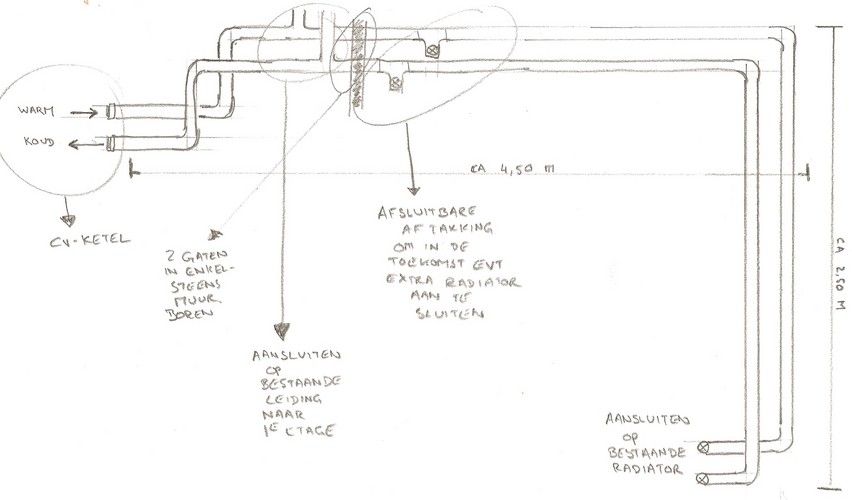 WARM
KOUD
CV-KETEL
CA 4,50 M
CA 2,50 M
2 GATEN
IN ENKEL-
STEENS
MUUR
BOREN
AFSLUITBARE
AFTAKKING
OM IN DE
TOEKOMST EVT
EXTRA RADIATOR
AAN TE
SLUITEN
AANSLUITEN
OP
BESTAANDE
LEIDING
NAAR
1E ETAGE
AANSLUITEN
OP
BESTAANDE
RADIATOR